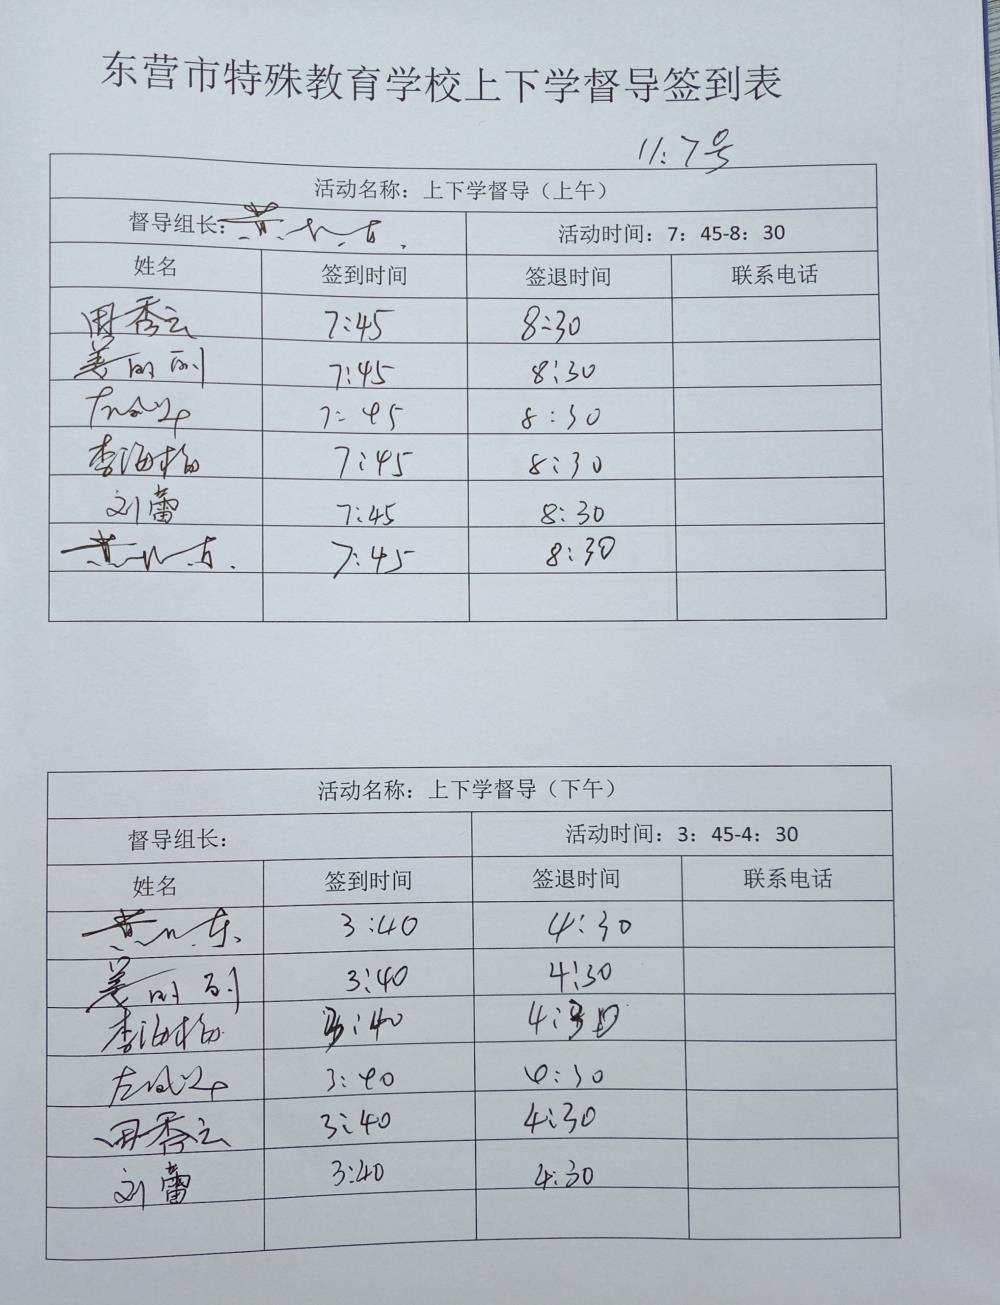 东营市特殊教育学校上下学督导签到表
11:7号
活动名称：上下学督导（上午）
督导组长： 活动时间：7：45-8：30
姓名 签到时间 签退时间 联系电话
周秀云 7:45 8:30
姜 7:45 8:30
左 7:45 8:30
李海梅 7:45 8:30
刘蕾 7:45 8:30
黄 7:45 8:30
活动名称：上下学督导（下午）
督导组长： 活动时间：3：45-4：30
姓名 签到时间 签退时间 联系电话
黄 3:40 4:30
姜 3:40 4:30
李海梅 3:40 4:30
左 3:40 4:30
周秀云 3:40 4:30
刘蕾 3:40 4:30